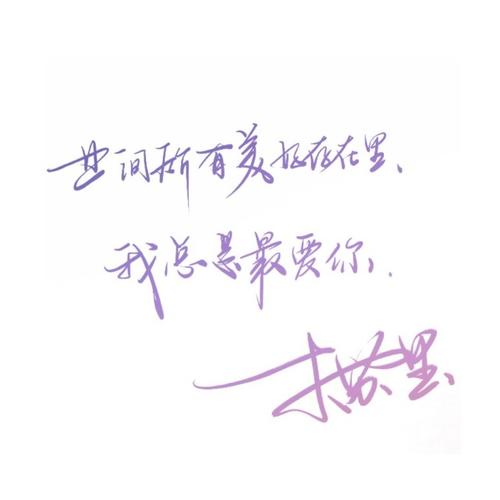 世间所有美好存在里、
我总是最爱你、
木苏里、